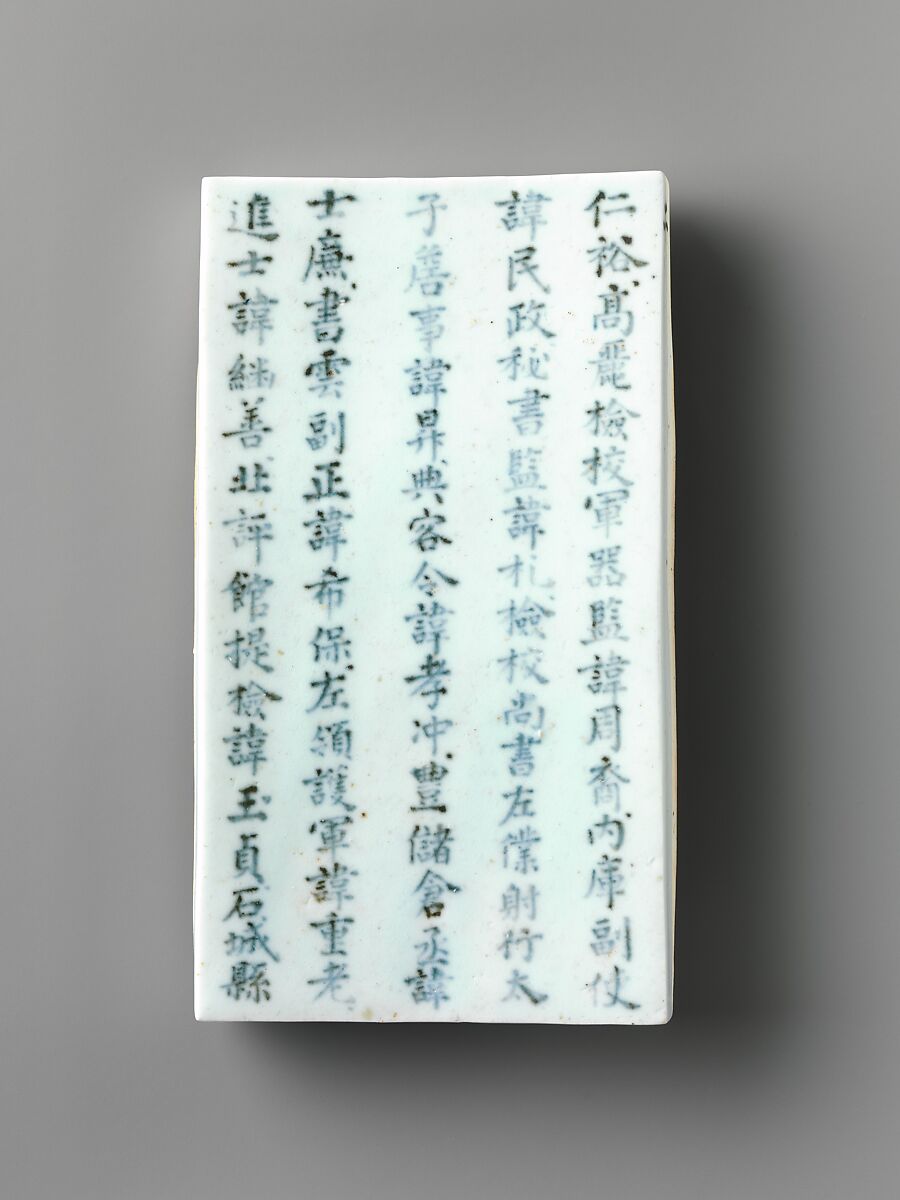 仁裕髙麗檢校軍器監諱周裔内庫副使
諱民政秘書監諱札檢校尚書左僕射行太
子詹事諱昇典客令諱孝冲豊儲倉丞諱
士廉書雲副正諱希保左領護軍諱重老
進士諱継善北評館提檢諱玉貞石城縣